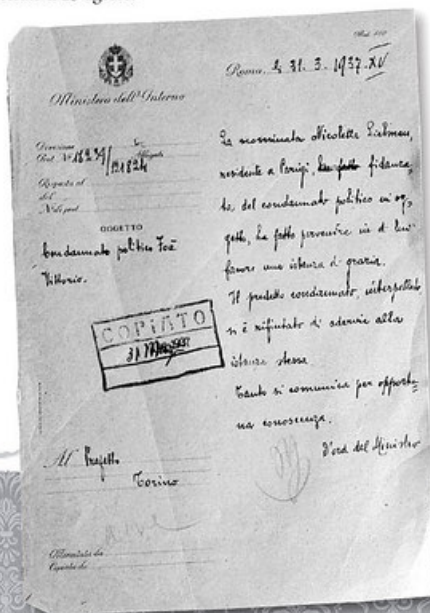 Mod.
Ministero dell'Interno
Roma, li 31. 3. 1937. XV
Divisione
Prot. N° 18239/121824
Risposta al
del
N° di prot.
OGGETTO
Condannato politico Foà
Vittorio.
COPIATO
31 MAR 1937
Al Prefetto
Torino
La nominata Nicoletta
residente a Parigi, fidanza-
ta del condannato politico in og-
getto, ha fatto pervenire in di lui
favore una istanza di grazia.
Il predetto condannato, interpellato
si è rifiutato di aderire alla
istanza stessa.
Tanto si comunica per opportu-
na conoscenza.
D'ord del Ministro